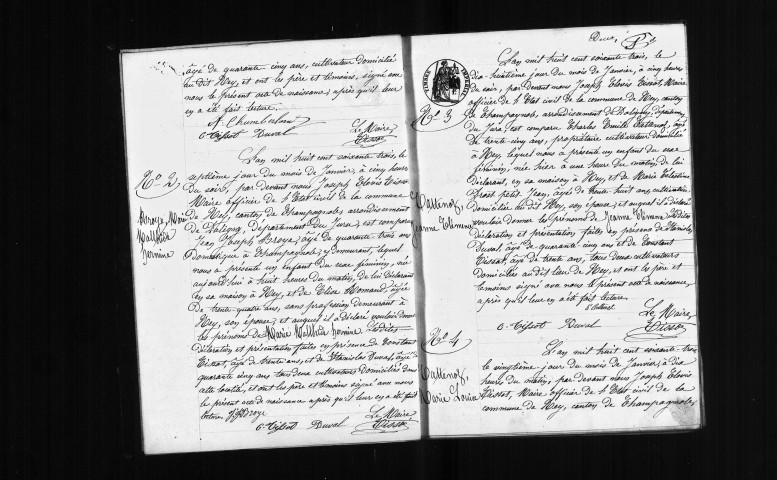 âgé de quarante cinq ans, cultivateur domicilié
au dit Ney, et ont les père et témoins, signé avec
nous le présent acte de naissance, après qu'il leur
en a été fait lecture.
Le Maire,
C. Tissot Duval Tissot
No 2
L'an mil huit cent soixante trois, le
septième jour du mois de Janvier, à cinq heures
du soir, par devant nous Joseph Clovis Tissot
Maire officier de l'Etat civil de la commune
de Ney, canton de Champagnole, arrondissement
de Poligny, département du Jura, est comparu
Jean Joseph Broye, âgé de quarante trois ans
Domestique à Champagnole, y demeurant, lequel
nous a présenté un enfant du sexe féminin, né
aujourd'hui à huit heures du matin, de lui déclarant
en sa maison à Ney, et de Elise Romand, âgée
de trente quatre ans, sans profession demeurant à
Ney, son épouse, et auquel il a déclaré vouloir donner
les prénoms de Marie
déclaration et présentation faites en présence de Constant
Tissot, âgé de trente ans, et de Stanislas Duval, âgé de
quarante cinq ans tous deux cultivateurs domiciliés dans
cette localité, et ont les père et témoins signé avec nous
le présent acte de naissance après qu'il leur en a été fait
lecture. Broye
Le Maire
C. Tissot Duval Tissot
Broye, Marie
TIMBRE IMPERIAL
No 3
L'an mil huit cent soixante trois, le
dix huitième jour du mois de Janvier, à cinq heures
du soir, par devant nous Joseph Clovis Tissot, Maire
officier de l'Etat civil de la commune de Ney, canton
de Champagnole, arrondissement de Poligny, département
du Jura, est comparu Charles Emile, âgé
de trente cinq ans, propriétaire cultivateur domicilié
à Ney, lequel nous a présenté un enfant du sexe
féminin, née hier à une heure du matin, de lui
déclarant, en sa maison à Ney, et de Marie Célestine
âgée de trente huit ans, cultivatrice
domiciliée au dit lieu de Ney, son épouse, et auquel il a déclaré
vouloir donner les prénoms de Jeanne
déclaration et présentation faites en présence de Stanislas
Duval, âgé de quarante cinq ans et de Constant
Tissot, âgé de trente ans, tous deux cultivateurs
domiciliés au dit lieu de Ney, et ont les père et
témoins signé avec nous le présent acte de naissance,
après qu'il leur en a été fait lecture.
Le Maire,
C. Tissot Duval Tissot
Jeanne
No 4
L'an mil huit cent soixante trois
le vingtième jour du mois de Janvier, à dix
heures du matin, par devant nous Joseph Clovis
Tissot, Maire officier de l'Etat civil de la
commune de Ney, canton de Champagnole,
Marie Louise